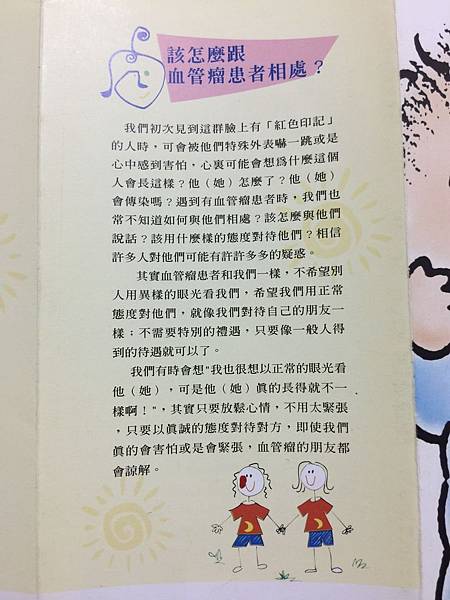 該怎麼跟
血管瘤患者相處?
我們初次見到這群臉上有「紅色印記」
的人時,可會被他們特殊外表嚇一跳或是
心中感到害怕,心裏可能會想爲什麼這個
人會長這樣?他(她)怎麼了?他(她)
會傳染嗎?遇到有血管瘤患者時,我們也
常不知道如何與他們相處?該怎麼與他們
說話?該用什麼樣的態度對待他們?相信
許多人對他們可能有許許多多的疑惑。
其實血管瘤患者和我們一樣,不希望別
人用異樣的眼光看我們,希望我們用正常
態度對他們,就像我們對待自己的朋友一
樣;不需要特別的禮遇,只要像一般人得
到的待遇就可以了。
我們有時會想"我也很想以正常的眼光看
他(她),可是他(她)眞的長得就不一
樣啊!",其實只要放鬆心情,不用太緊張
,只要以眞誠的態度對待對方,即使我們
眞的會害怕或是會緊張,血管瘤的朋友都
會諒解。